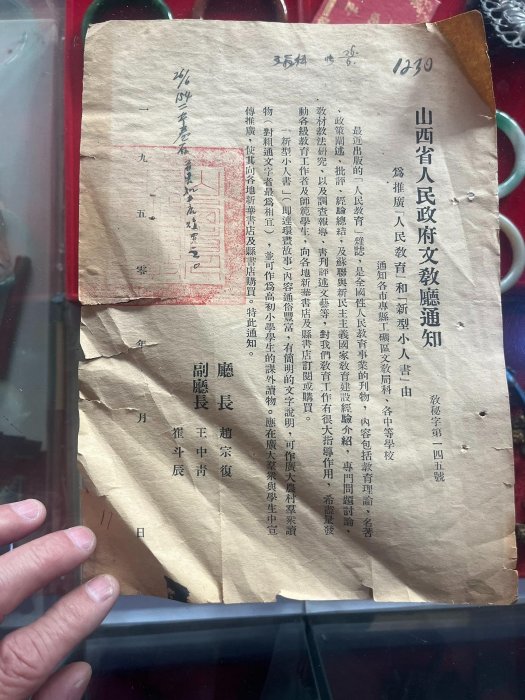 1230
山西省人民政府文教廳通知
教秘字第一四五號
為推廣「人民教育」和「新型小人書」由
通知各市專縣工礦區文教局科、各中等學校
最近出版的「人民教育」雜誌，是全國性人民教育事業的刊物，內容包括教育理論，名著
、政策闡述，批評，經驗總結，及蘇聯與新民主主義國家教育建設經驗介紹，專門問題討論，
教材教法研究，以及調查報導，書刊評述文藝等，對我們教育工作有很大指導作用，希能發
動各級教育工作者及師範學生，向各地新華書店及縣書店訂閱或購買。
「新型小人書」（即連環畫故事）內容通俗豐富，有簡明的文字說明，可作廣大農村羣衆讀
物（對粗通文字者最為相宜），並可作為高初小學學生的課外讀物。應在廣大羣衆與學生中宣
傳推廣，使其向各地新華書店及縣書店購買。特此通知。
廳長 趙宗復
副廳長 王中青
崔斗辰
一九五零年 月 日
11